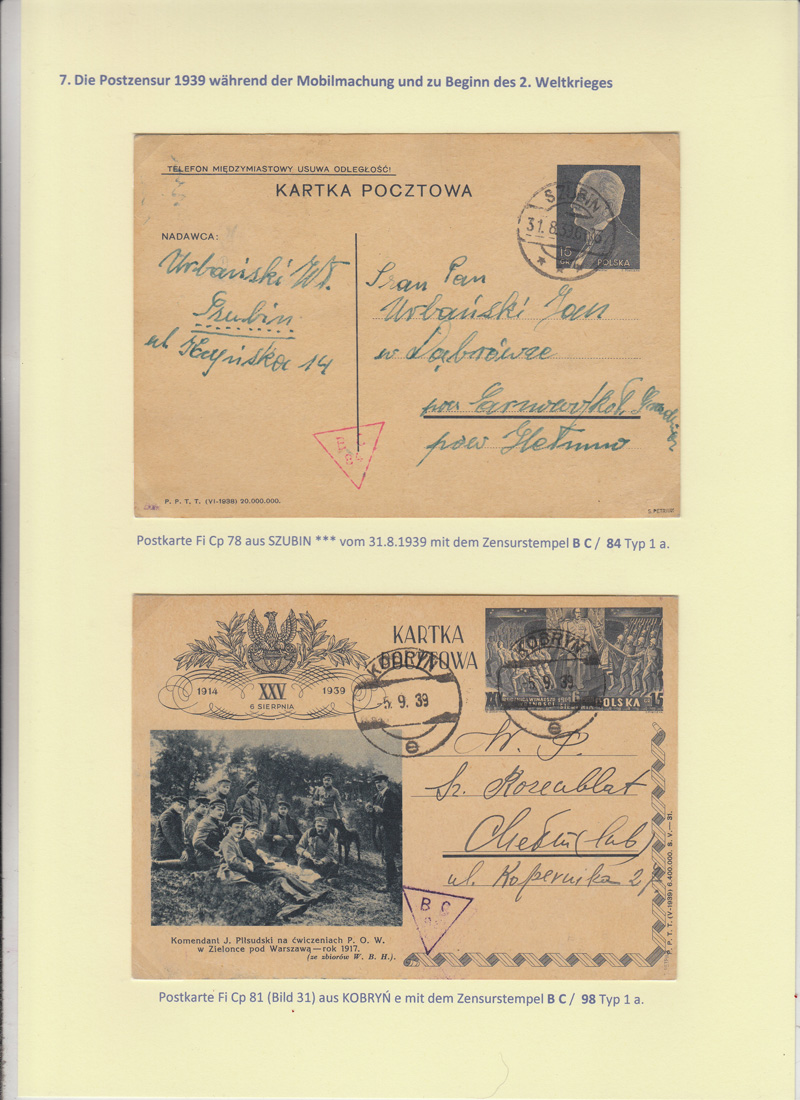 7. Die Postzensur 1939 während der Mobilmachung und zu Beginn des 2. Weltkrieges
TELEFON MIĘDZYMIASTOWY USUWA ODLEGŁOŚĆ!
KARTKA POCZTOWA
SZUBIN
31.8.39
15
GR
POLSKA
NADAWCA:
Urbański Wł.
Szubin
ul. Kcyńska 14
Pan
Urbański Jan
w Dąbrówce
pow
pow
P. P. T. T. (VI-1938) 20.000.000.
Postkarte Fi Cp 78 aus SZUBIN *** vom 31.8.1939 mit dem Zensurstempel B C / 84 Typ 1 a.
1914 XXV 1939
6 SIERPNIA
KARTKA
POCZTOWA
KOBRYŃ
-5. 9. 39
e
KOBRYŃ
-5. 9. 39
e
POLSKA 15
W. P.
Sz. Rosenblat
Chełm (lub)
ul. Kopernika
B C
Komendant J. Piłsudski na ćwiczeniach P. O. W.
w Zielonce pod Warszawą — rok 1917.
(ze zbiorów W. B. H.).
P. P. T. T. (V-1939) 6.400.000. S. V.— 31.
Postkarte Fi Cp 81 (Bild 31) aus KOBRYŃ e mit dem Zensurstempel B C / 98 Typ 1 a.